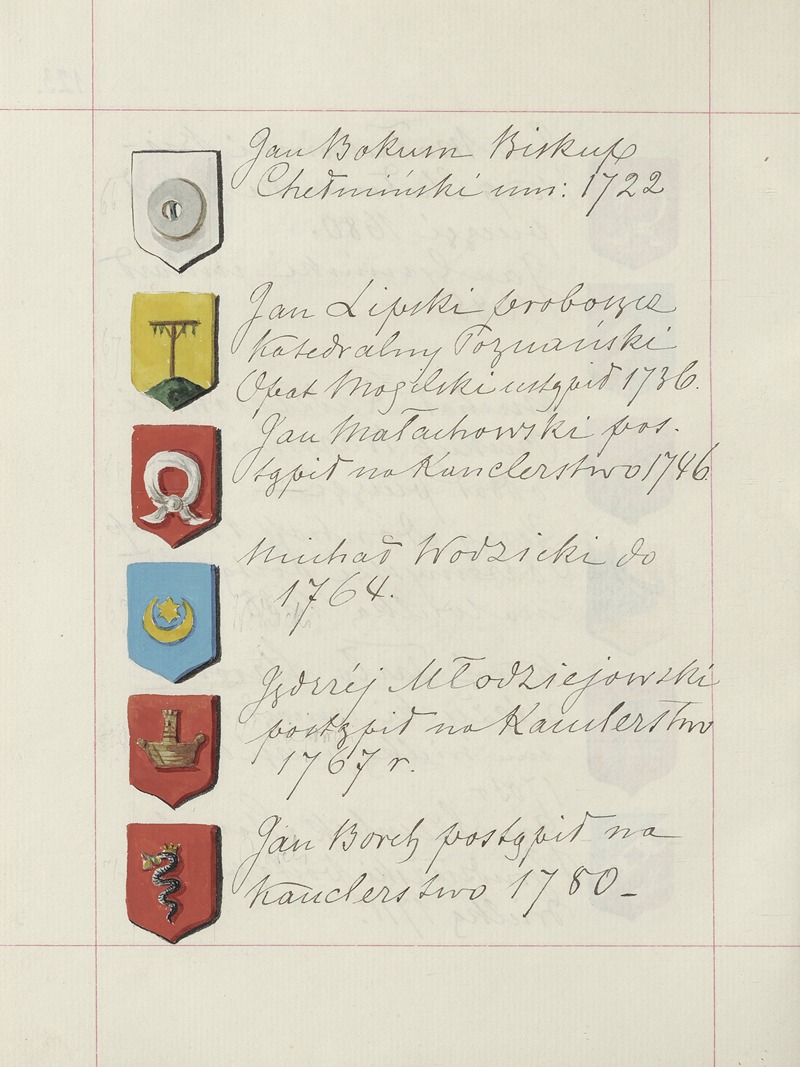 Jan Bokum Biskup
Chełmiński um: 1722
Jan Lipski proboszcz
Katedralny Poznański
Opat Mogilski ustąpił 1736.
Jan Małachowski pos-
tąpił na Kanclerstwo 1746
Michał Wodzicki do
1764.
Jędrzéj Młodziejowski
postąpił na Kanclerstwo
1767 r.
Jan Borch postąpił na
kanclerstwo 1780_